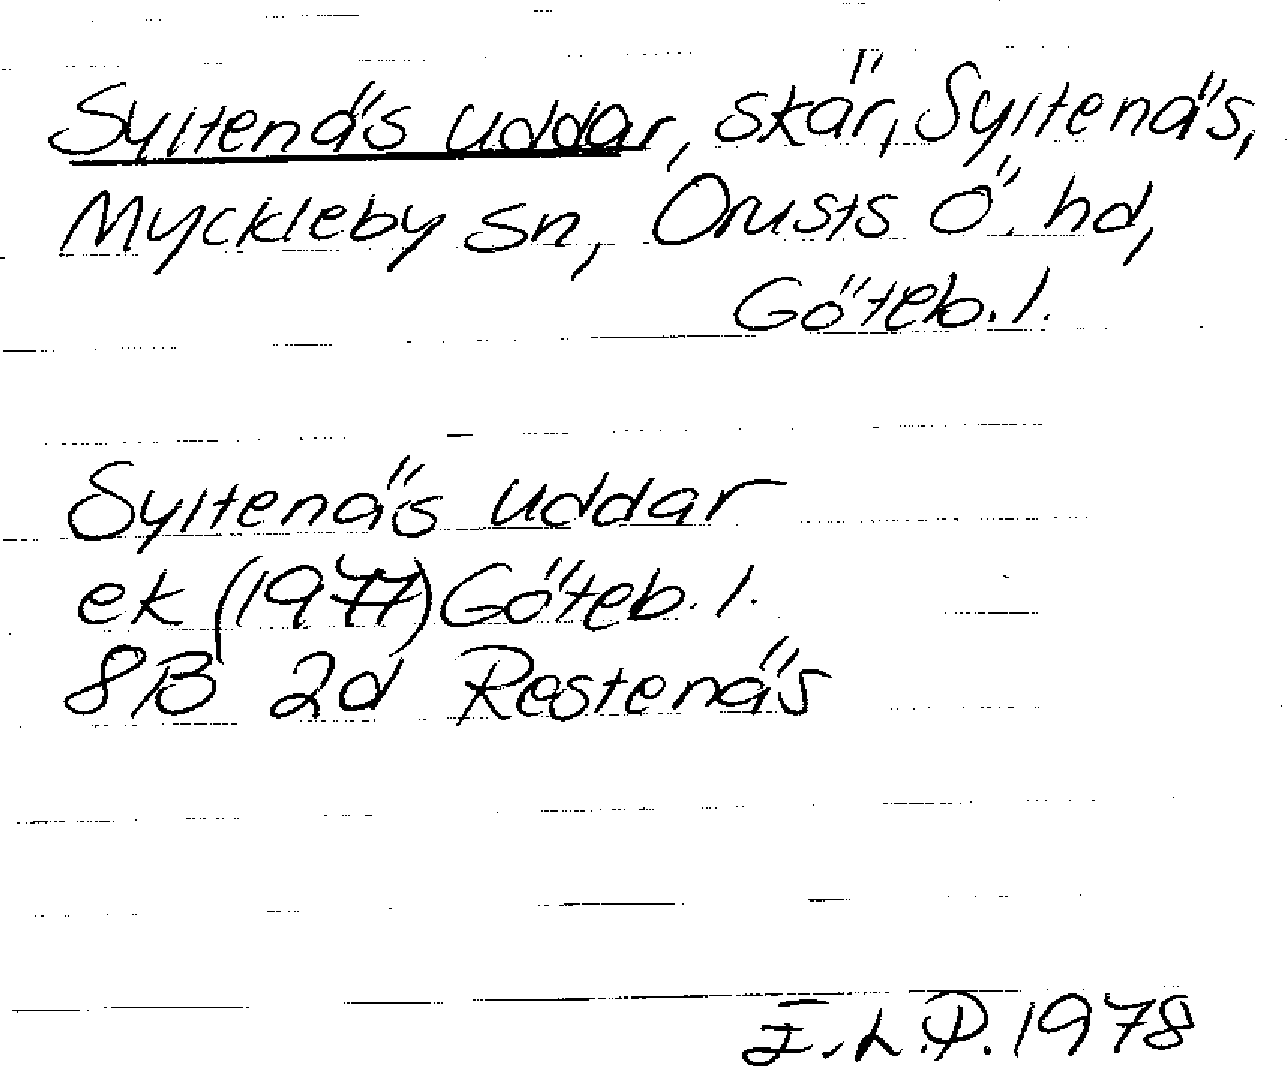 Syltenäs uddar, skär, Syltenäs,
Myckleby sn, Orusts Ö. hd,
Göteb. l.
Syltenäs uddar
ek (1977) Göteb. l.
8B 2d Restenäs
I.L.P. 1978